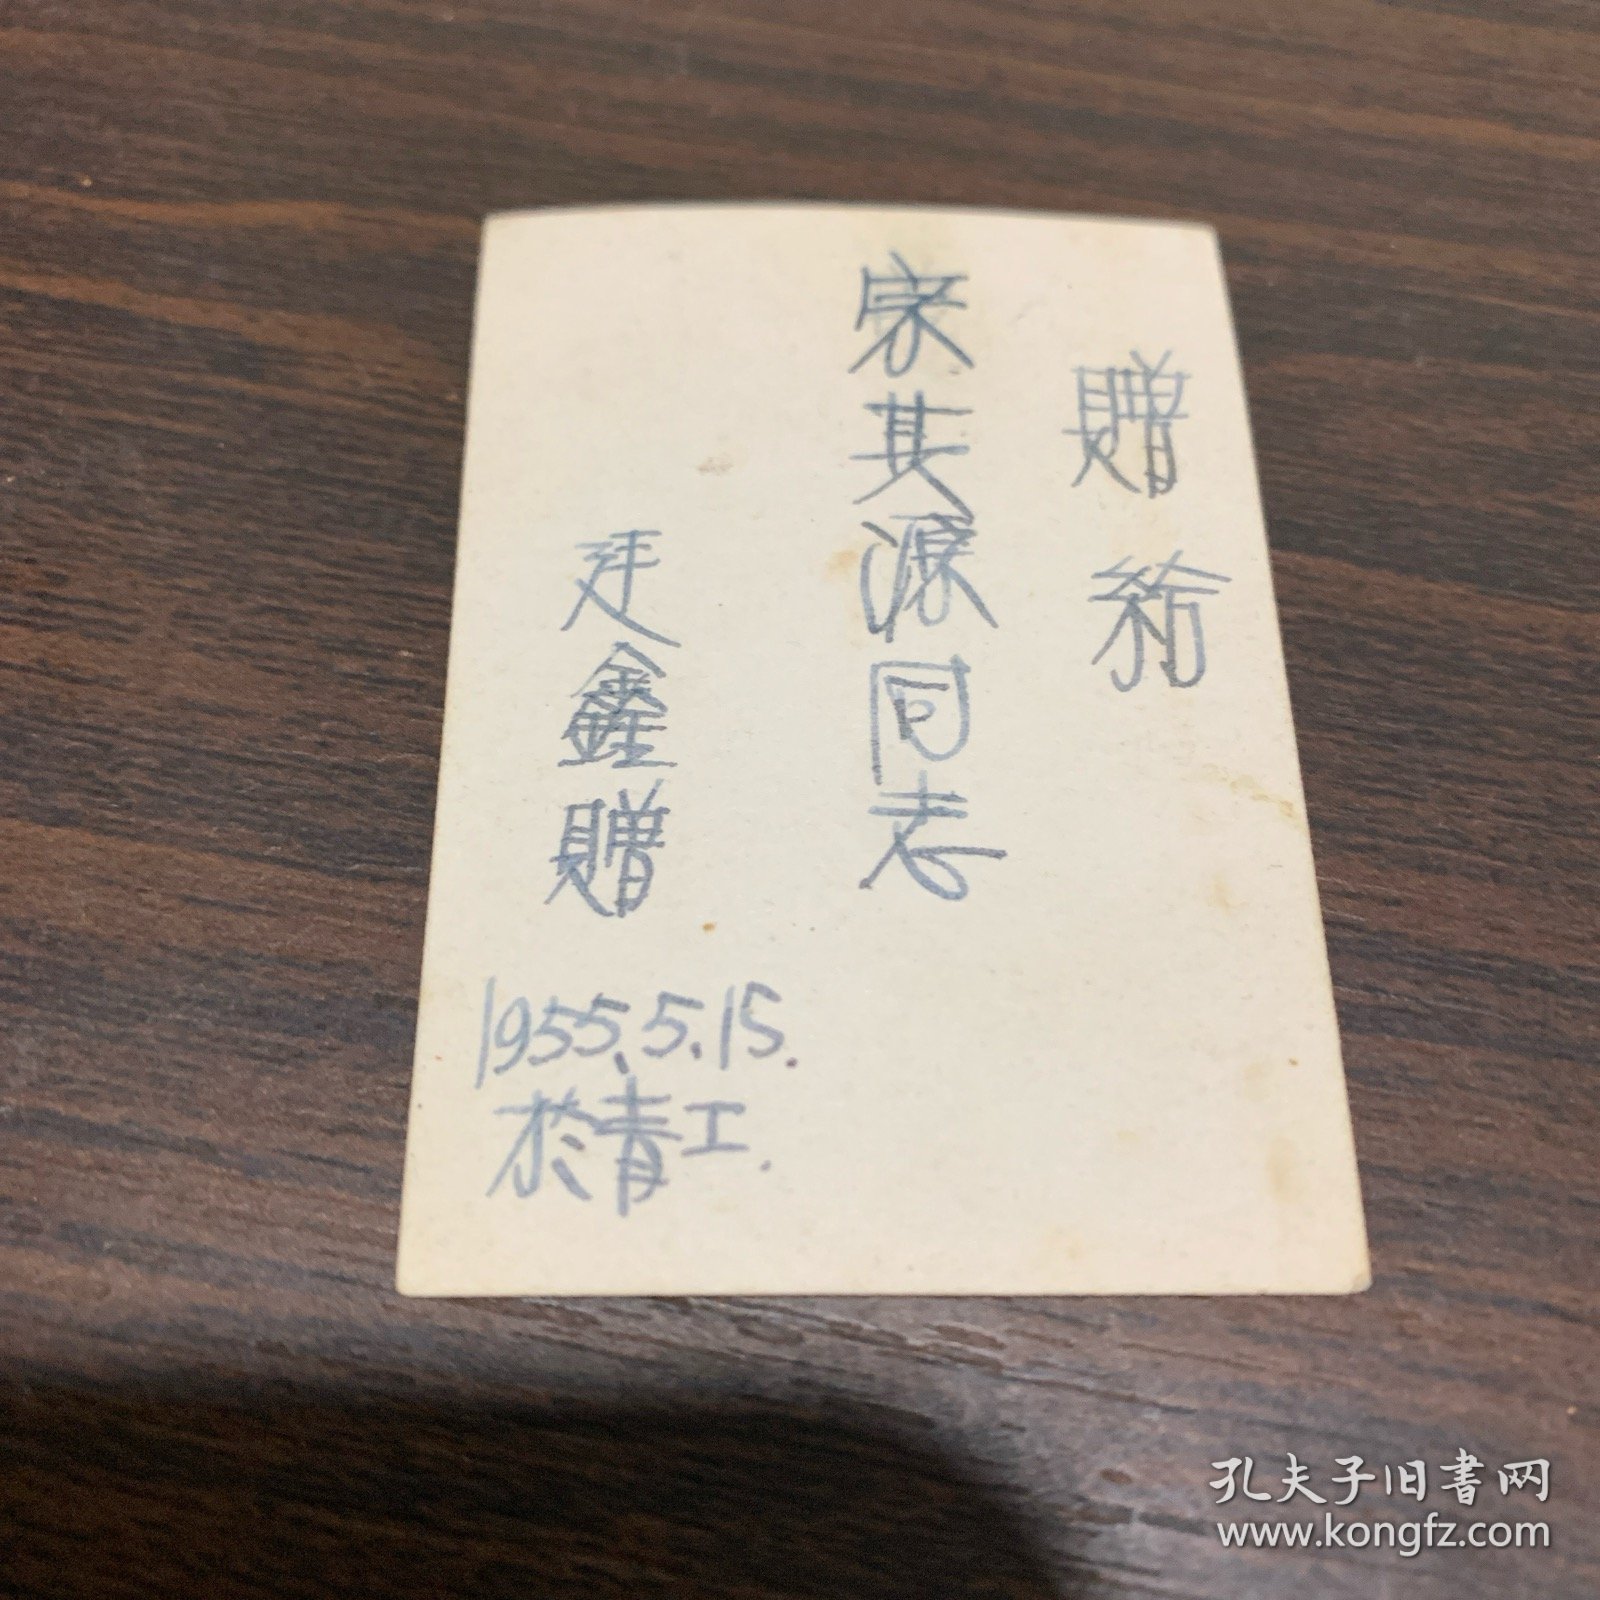 贈給
宋其源同志
廷鑫贈
1955.5.15.
於青工.
孔夫子旧书网
www.kongfz.com